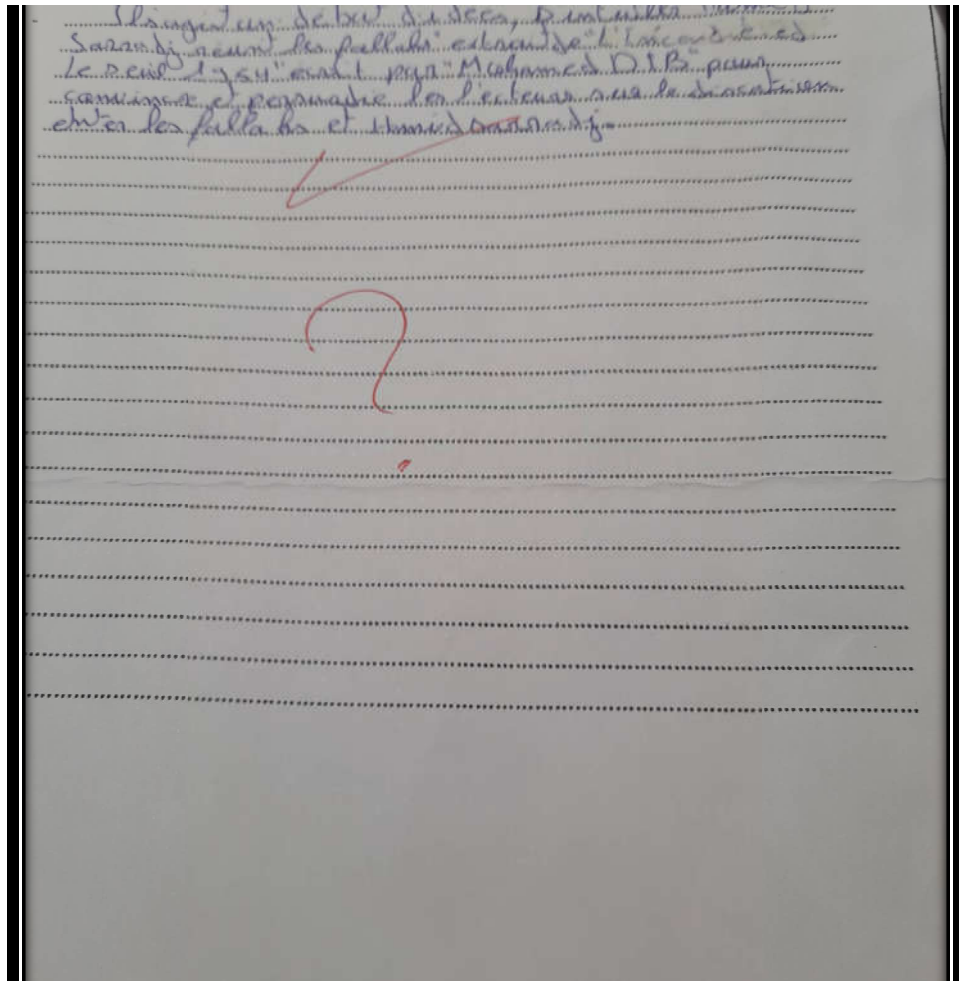 Il s'agit un débat d'idées, D'intitulés "Hamid
Saraadj réunit les fellahs" extrait de "L'Incendie ed
Le seuil 1954" écrit par "Mohamed DIB" pour
convaincre et persuadre les lecteurs sur la discution
entre les fallahs et Hmid Saraadj.
?